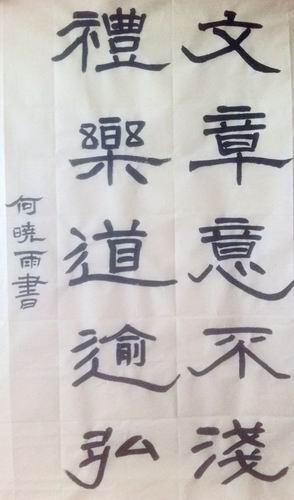 文章意不淺
禮樂道逾弘
何曉雨書